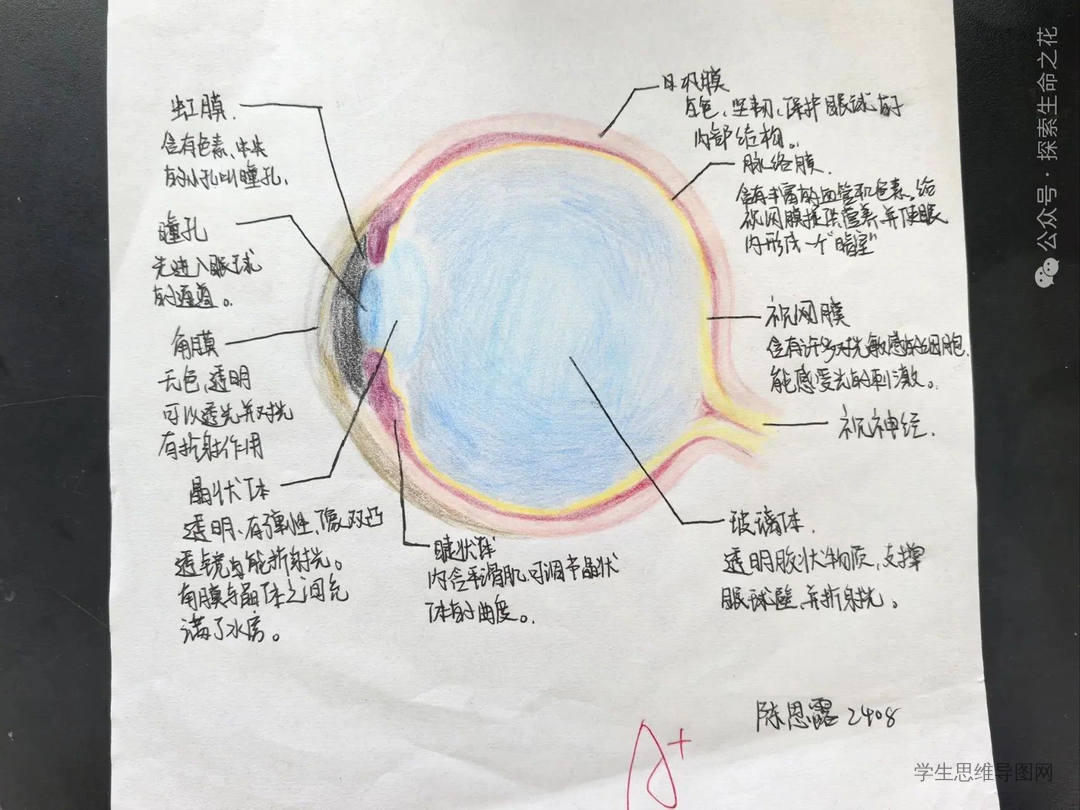 虹膜.
含有色素、中央
的小孔叫瞳孔.
瞳孔
光进入眼球
的通道。
角膜
无色、透明
可以透光并对光
有折射作用
晶状体
透明、有弹性、像双凸
透镜能折射光。
角膜与晶体之间充
满了水房。
睫状体
内含平滑肌,可调节晶状
体的曲度。
巩膜
白色、坚韧、保护眼球的
内部结构。
脉络膜.
含有丰富的血管和色素,给
视网膜提供营养,并使眼
内形成一个"暗室"
视网膜
含有许多对光敏感的细胞,
能感受光的刺激。
视神经.
玻璃体.
透明胶状物质,支撑
眼球壁,并折射光。
陈恩露 2408
A+
公众号·探索生命之花
学生思维导图网